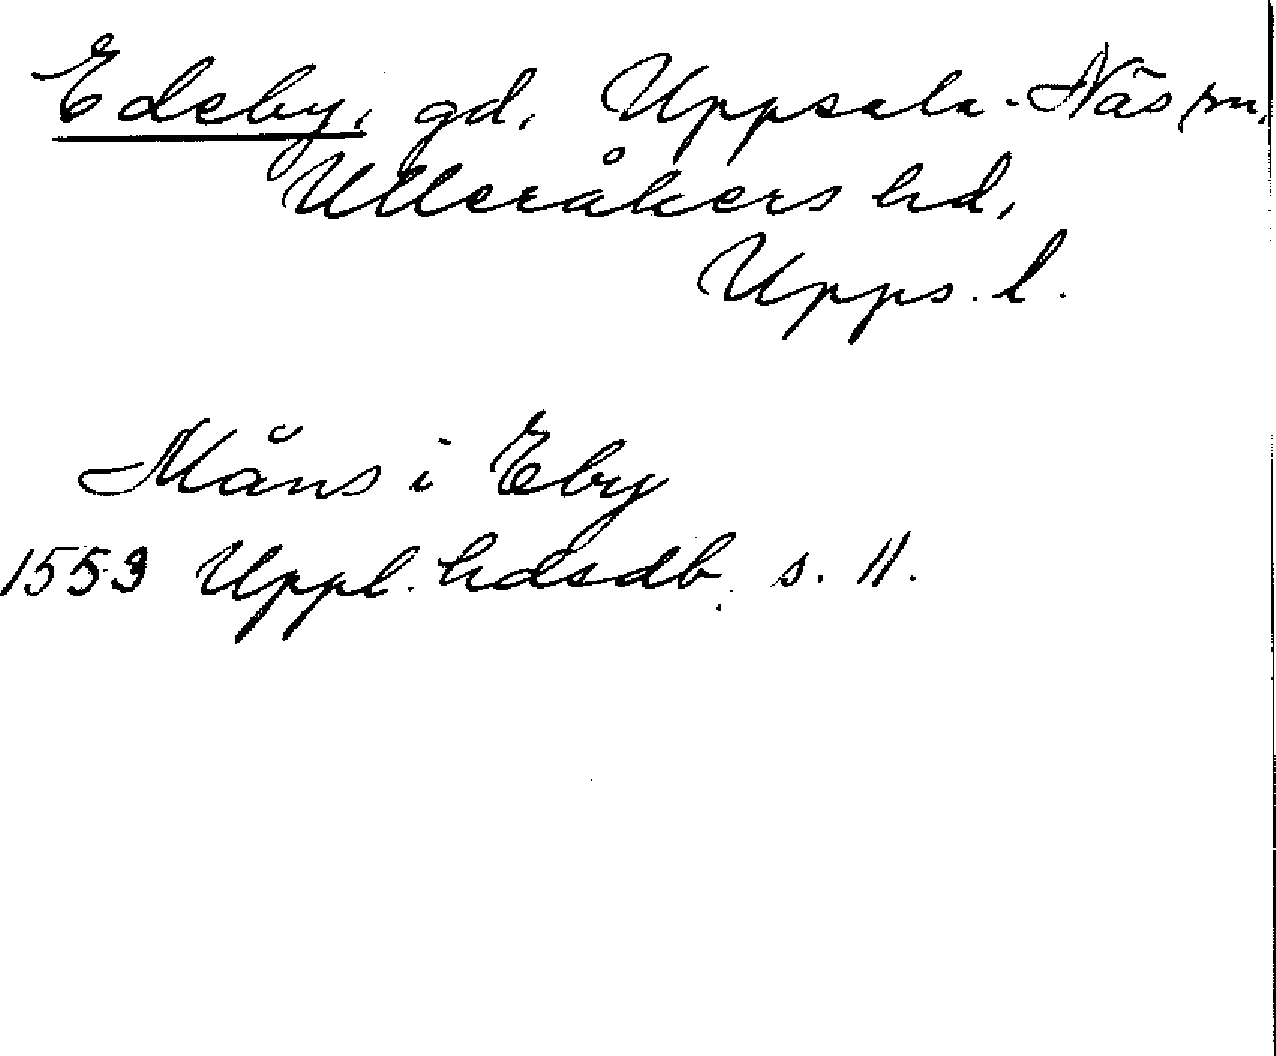 Edeby, gd, Uppsala-Näs sn,
Ulleråkers hd,
Upps. l.
Måns i Eby
1553 Uppl. hdsdb. s. 11.